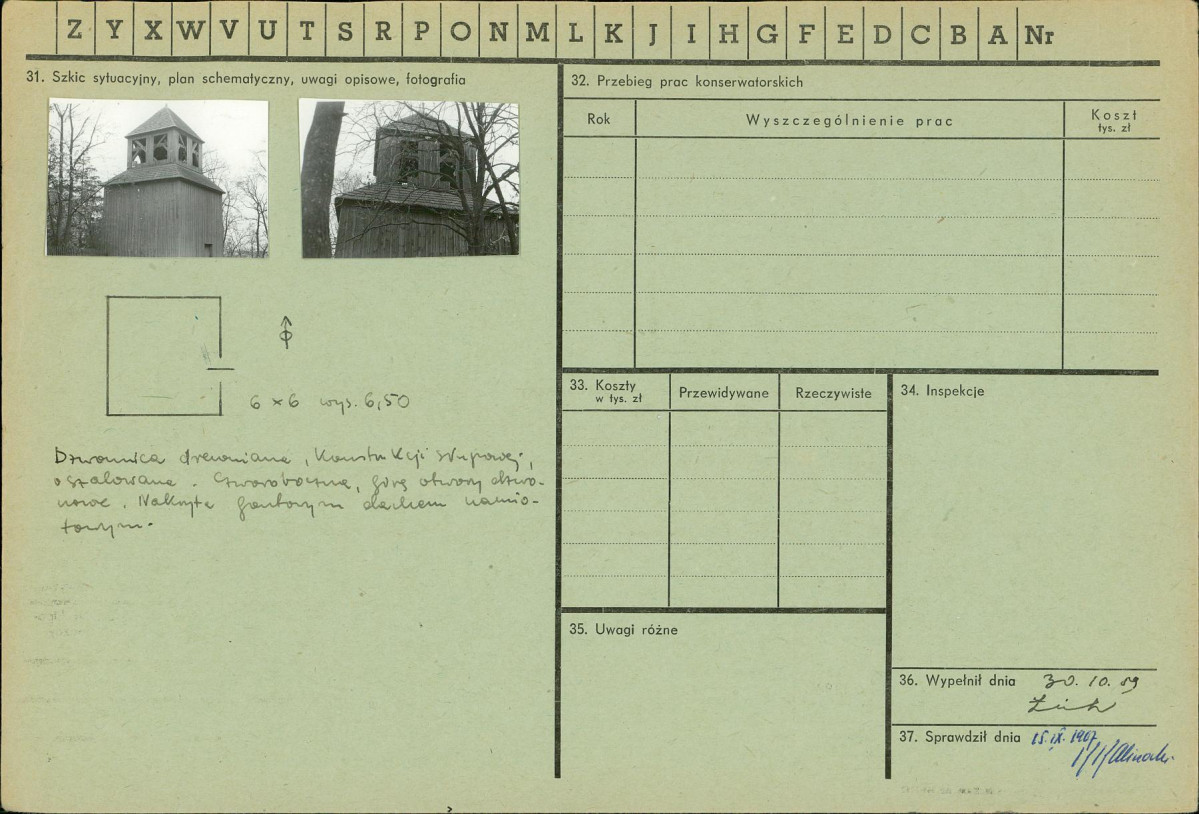 Z Y X W V U T S R P O N M L K J I H G F E D C B A Nr
31. Szkic sytuacyjny, plan schematyczny, uwagi opisowe, fotografia
6 × 6 wys. 6,50
Dzwonnica drewniana, konstrukcji słupowej,
oszalowana. Czworoboczna, górą otwory dzwo-
nowe. Nakryta gontowym dachem namio-
towym.
32. Przebieg prac konserwatorskich
Rok
Wyszczególnienie prac
Koszt
tys. zł
33. Koszty
w tys. zł
Przewidywane
Rzeczywiste
34. Inspekcje
35. Uwagi różne
36. Wypełnił dnia 30. 10. 59
37. Sprawdził dnia 15. IX. 1967